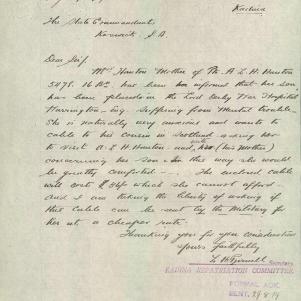 Kadina
The State Commandant
Keswick, S.A.
Dear Sir,
Mrs Hunton Mother of Pte A L H Hunton
5478. 16 Bn. has been informed that her son
has been placed in the Lord Derby War Hospital
Warrington - Eng. suffering from Mental trouble.
She is naturally very anxious and wants to
cable to her cousin in Scotland asking her
to visit A. L H. Hunton and write her (his Mother)
concerning her Son. In this way she would
be greatly comforted. The enclosed cable
will cost which she cannot afford
and I am taking the liberty of asking if
this Cable can be sent by the Military for
her at a cheaper rate.
Thanking you for your consideration
Yours faithfully
Secretary
KADINA REPATRIATION COMMITTEE.
FORMAL ACK.
SENT. 29/8/19